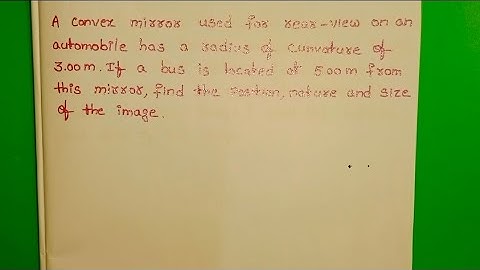 A convex mirror used for rear-view on an
automobile has a radius of Curvature of
3.00m. If a bus is located at 5.00m from
this mirror, find the position, nature and size
of the image.